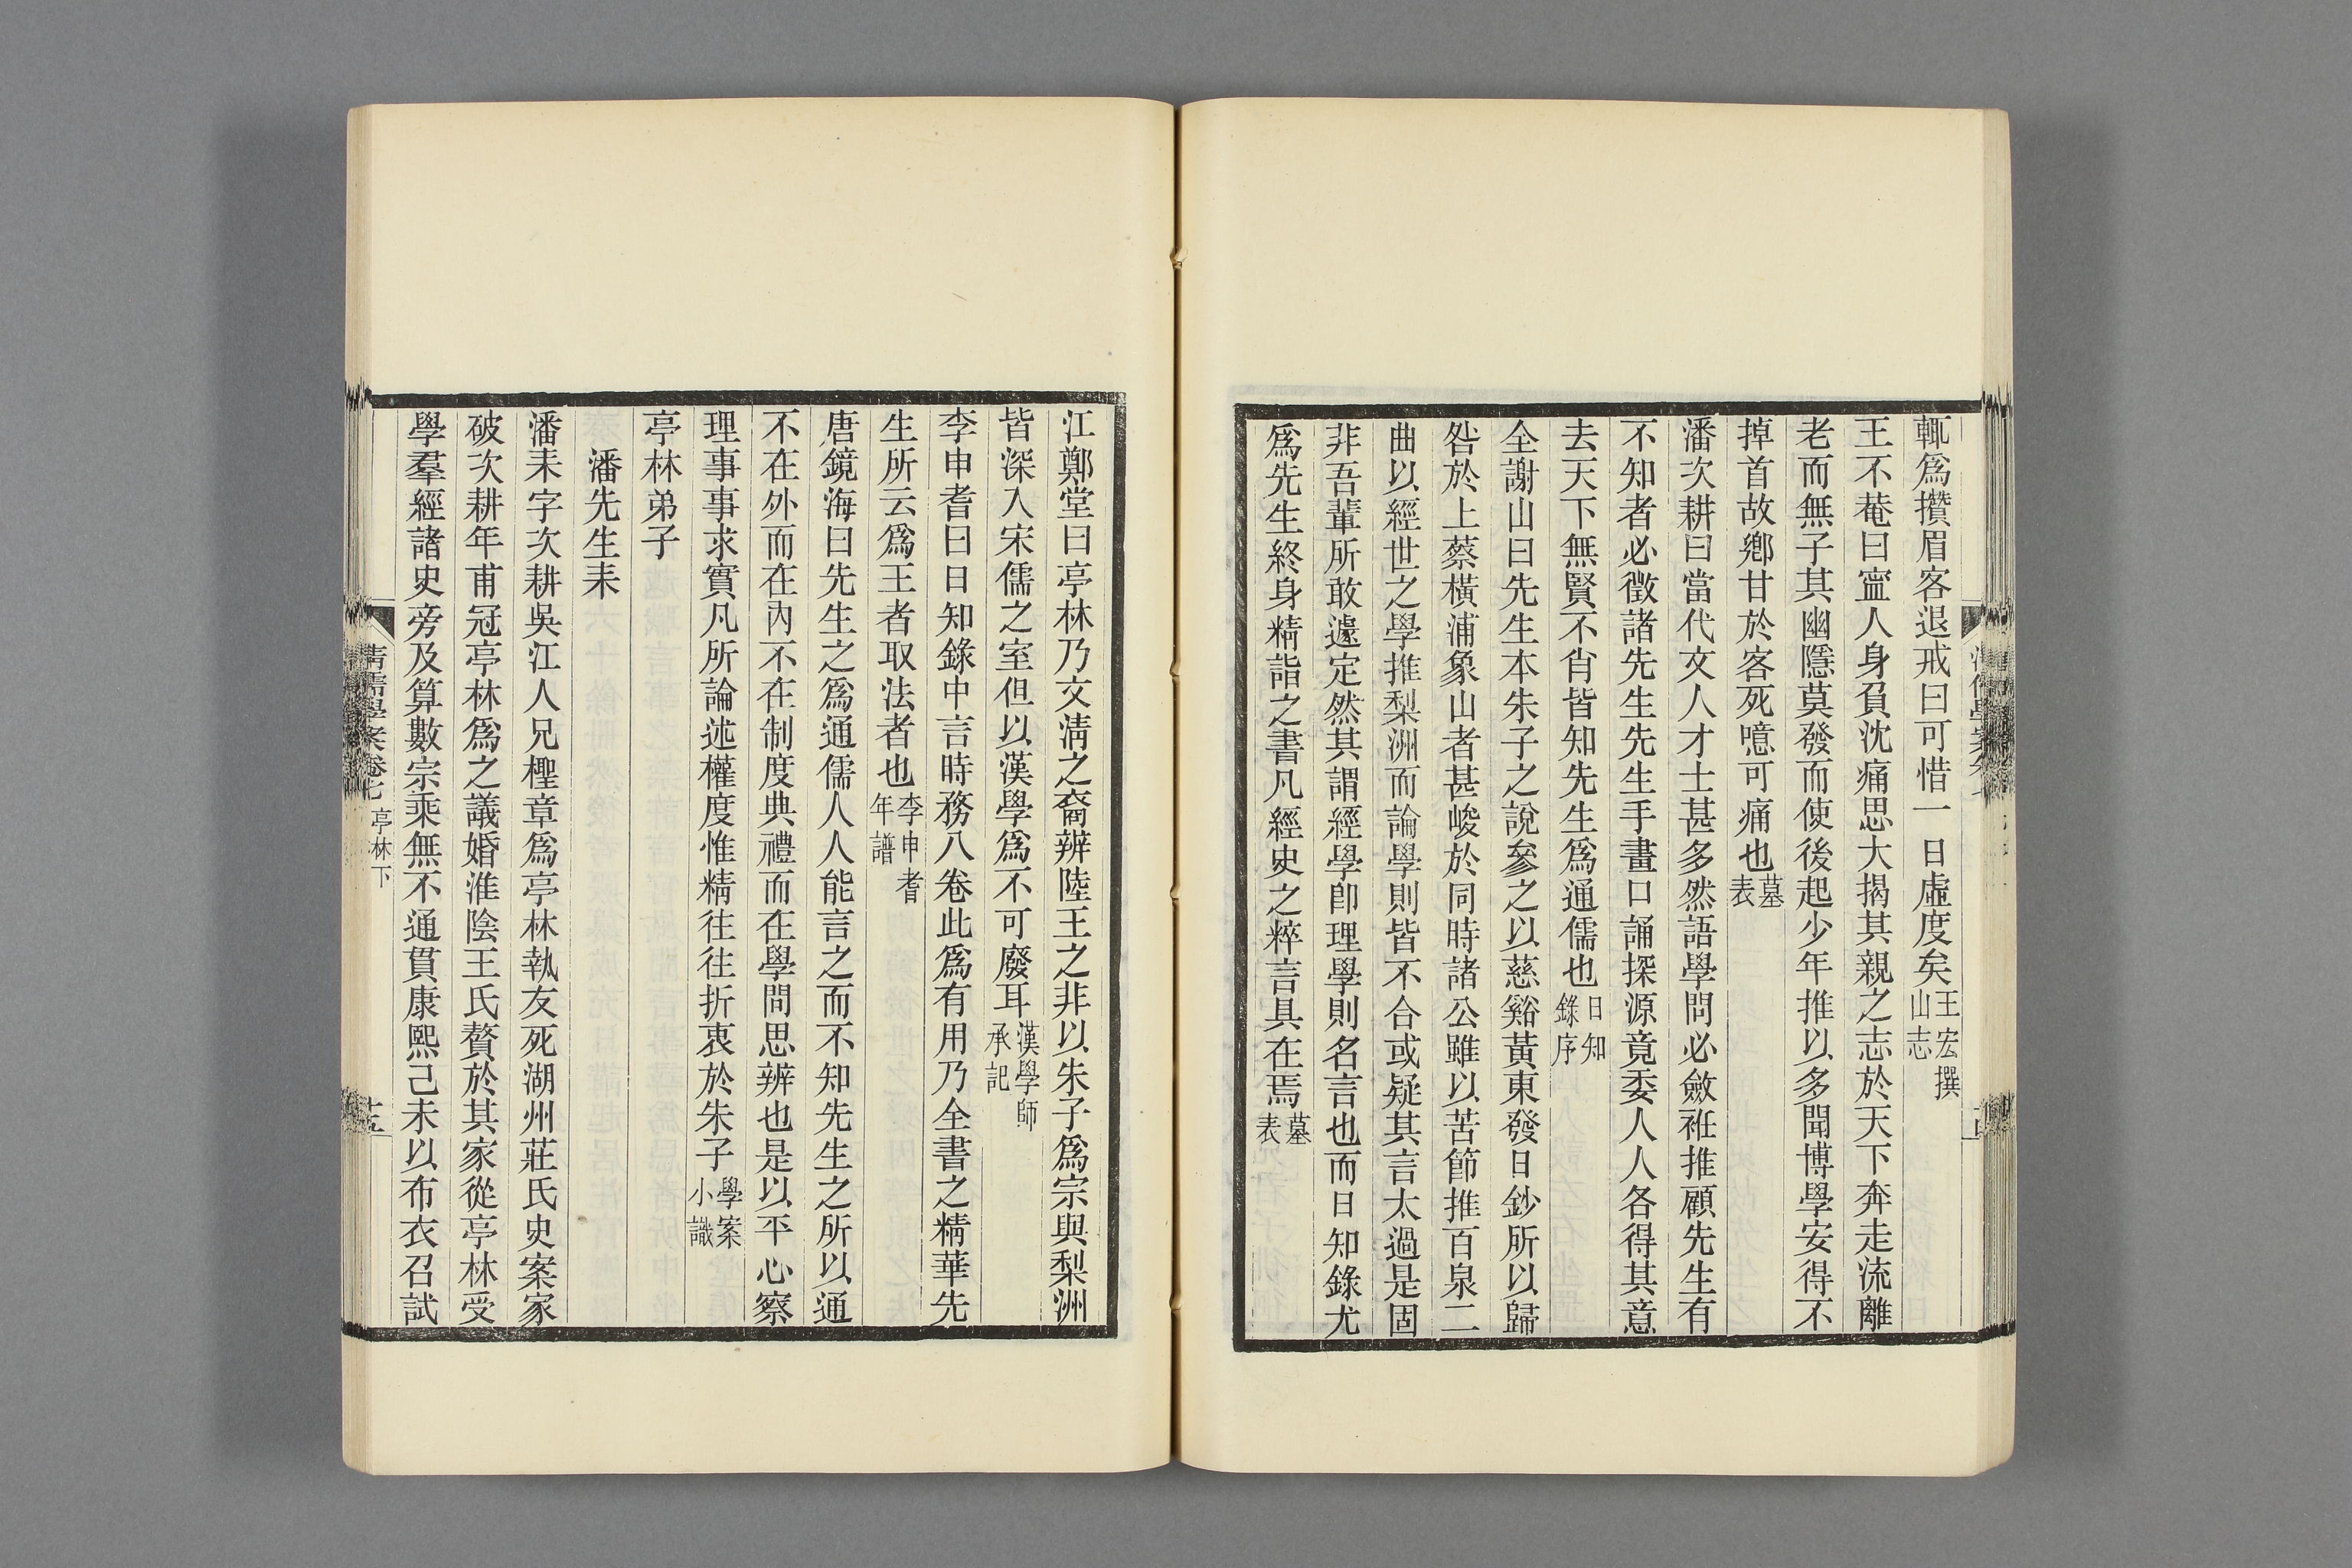 輒爲攢眉客退戒曰可惜一日虛度矣王宏撰山志
王不菴曰寧人身負沈痛思大揭其親之志於天下奔走流離
老而無子其幽隱莫發而使後起少年推以多聞博學安得不
掉首故鄉甘於客死噫可痛也墓表
潘次耕曰當代文人才士甚多然語學問必斂袵推顧先生有
不知者必徵諸先生先生手畫口誦探源竟委人人各得其意
去天下無賢不肖皆知先生爲通儒也日知錄序
全謝山曰先生本朱子之說參之以慈谿黃東發日鈔所以歸
咎於上蔡橫浦象山者甚峻於同時諸公雖以苦節推百泉二
曲以經世之學推梨洲而論學則皆不合或疑其言太過是固
非吾輩所敢遽定然其謂經學卽理學則名言也而日知錄尤
爲先生終身精詣之書凡經史之粹言具在焉墓表
江鄭堂曰亭林乃文淸之裔辨陸王之非以朱子爲宗與梨洲
皆深入宋儒之室但以漢學爲不可廢耳漢學師承記
李申耆曰日知錄中言時務八卷此爲有用乃全書之精華先
生所云爲王者取法者也李申耆年譜
唐鏡海曰先生之爲通儒人人能言之而不知先生之所以通
不在外而在內不在制度典禮而在學問思辨也是以平心察
理事事求實凡所論述權度惟精往往折衷於朱子學案小識
亭林弟子
潘先生耒
潘耒字次耕吳江人兄檉章爲亭林執友死湖州莊氏史案家
破次耕年甫冠亭林爲之議婚淮陰王氏贅於其家從亭林受
學羣經諸史旁及算數宗乘無不通貫康熙己未以布衣召試
清儒學案卷七 亭林下
十五